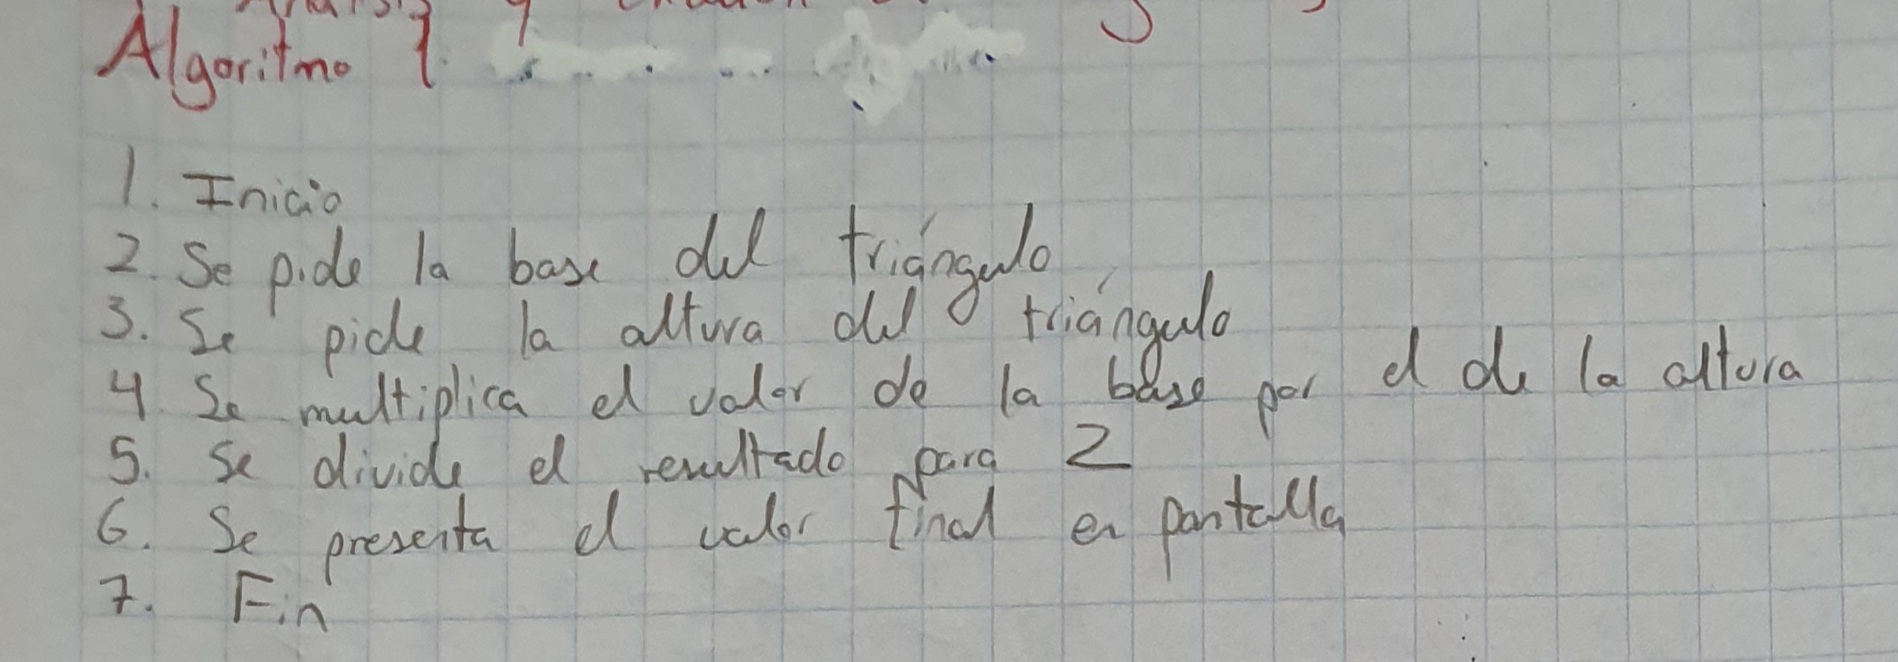 Algoritmo 1.
1. Inicio
2. Se pide la base del triángulo
3. Se pide la altura del triángulo
4 Se multiplica el valor de la base por el de la altura
5. Se divide el resultado para 2
6. Se presenta el valor final en pantalla
7. Fin